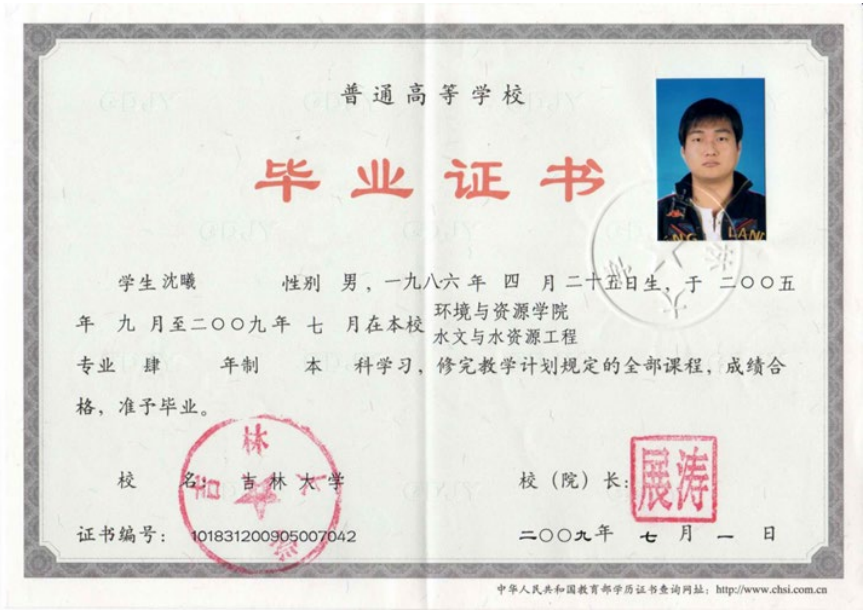 普通高等学校
毕业证书
学生 沈曦 性别 男，一九八六年 四 月 二十五日生，于 二〇〇五
年 九 月至二〇〇九年 七 月在本校 环境与资源学院
水文与水资源工程
专业 肆 年制 本 科学习，修完教学计划规定的全部课程，成绩合
格，准予毕业。
校 名：吉林大学 校（院）长：
展涛
吉林大学
证书编号： 101831200905007042 二〇〇九年 七 月 一 日
中华人民共和国教育部学历证书查询网址：http://www.chsi.com.cn